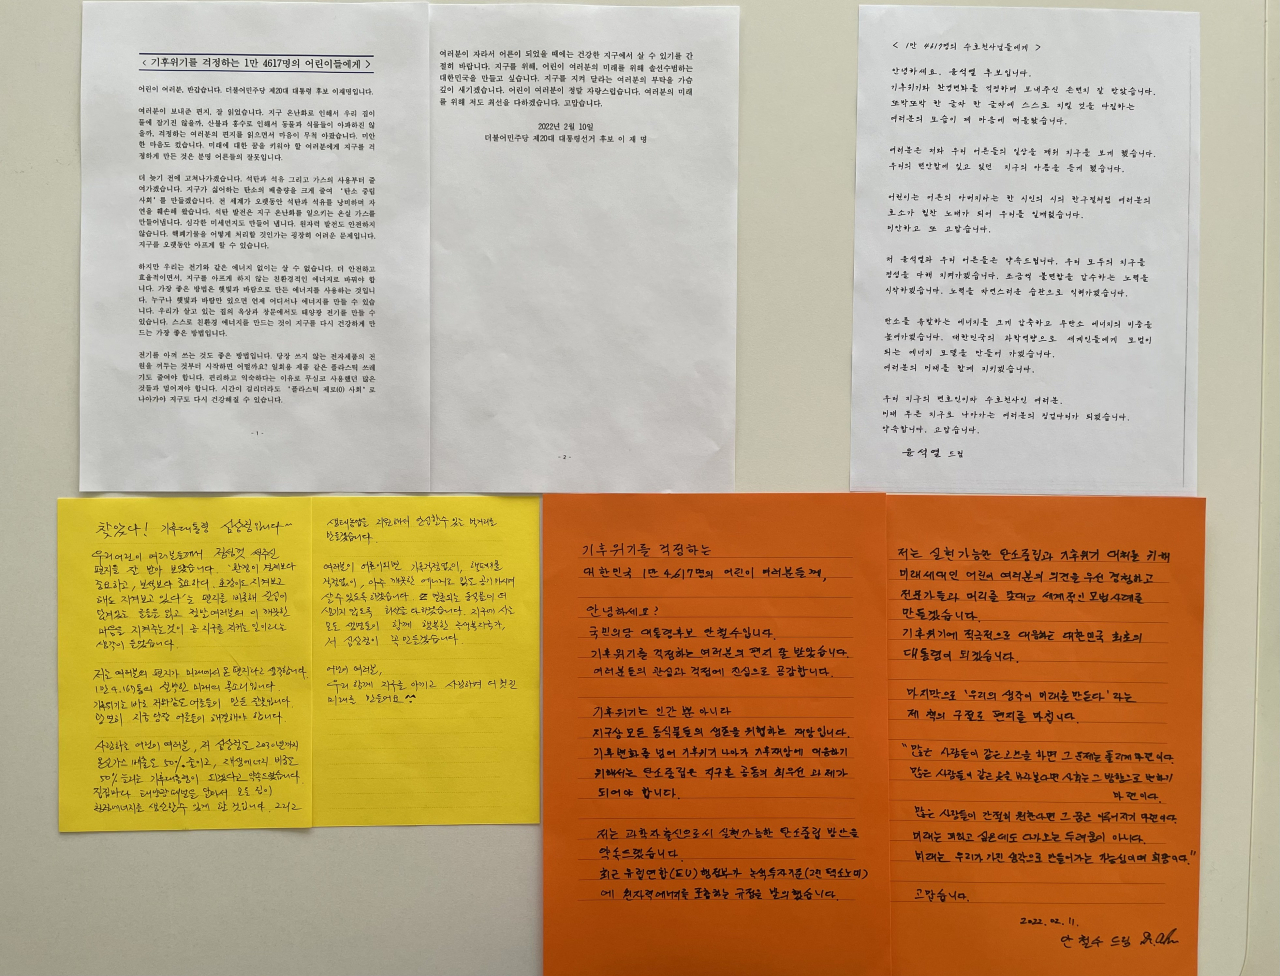 < 기후위기를 걱정하는 1만 4617명의 어린이들에게 >
어린이 여러분, 반갑습니다. 더불어민주당 제20대 대통령 후보 이재명입니다.
여러분이 보내준 편지, 잘 읽었습니다. 지구 온난화로 인해서 우리 집이
물에 잠기진 않을까, 산불과 홍수로 인해서 동물과 식물들이 아파하진 않
을까, 걱정하는 여러분의 편지를 읽으면서 마음이 무척 아팠습니다. 미안
한 마음도 컸습니다. 미래에 대한 꿈을 키워야 할 여러분에게 지구를 걱
정하게 만든 것은 분명 어른들의 잘못입니다.
더 늦기 전에 고쳐나가겠습니다. 석탄과 석유 그리고 가스의 사용부터 줄
여가겠습니다. 지구가 싫어하는 탄소의 배출량을 크게 줄여 '탄소 중립
사회'를 만들겠습니다. 전 세계가 오랫동안 석탄과 석유를 낭비하며 자
연을 훼손해 왔습니다. 석탄 발전은 지구 온난화를 일으키는 온실 가스를
만들어냅니다. 심각한 미세먼지도 만들어 냅니다. 원자력 발전도 안전하지
않습니다. 핵폐기물을 어떻게 처리할 것인가는 굉장히 어려운 문제입니다.
지구를 오랫동안 아프게 할 수 있습니다.
하지만 우리는 전기와 같은 에너지 없이는 살 수 없습니다. 더 안전하고
효율적이면서, 지구를 아프게 하지 않는 친환경적인 에너지로 바꿔야 합
니다. 가장 좋은 방법은 햇빛과 바람으로 만든 에너지를 사용하는 것입니
다. 누구나 햇빛과 바람만 있으면 언제 어디서나 에너지를 만들 수 있습
니다. 우리가 살고 있는 집의 옥상과 창문에서도 태양광 전기를 만들 수
있습니다. 스스로 친환경 에너지를 만드는 것이 지구를 다시 건강하게 만
드는 가장 좋은 방법입니다.
전기를 아껴 쓰는 것도 좋은 방법입니다. 당장 쓰지 않는 전자제품의 전
원을 꺼두는 것부터 시작하면 어떨까요? 일회용 제품 같은 플라스틱 쓰레
기도 줄여야 합니다. 편리하고 익숙하다는 이유로 무심코 사용했던 많은
것들과 멀어져야 합니다. 시간이 걸리더라도 "플라스틱 제로(0) 사회"로
나아가야 지구도 다시 건강해질 수 있습니다.
- 1 -
여러분이 자라서 어른이 되었을 때에는 건강한 지구에서 살 수 있기를 간
절히 바랍니다. 지구를 위해, 어린이 여러분의 미래를 위해 솔선수범하는
대한민국을 만들고 싶습니다. 지구를 지켜 달라는 여러분의 부탁을 가슴
깊이 새기겠습니다. 어린이 여러분이 정말 자랑스럽습니다. 여러분의 미래
를 위해 저도 최선을 다하겠습니다. 고맙습니다.
2022년 2월 10일
더불어민주당 제20대 대통령선거 후보 이 재 명
- 2 -
< 1만 4617명의 수호천사님들에게 >
안녕하세요. 윤석열 후보입니다.
기후위기와 환경변화를 걱정하며 보내주신 손편지 잘 받았습니다.
또박또박 한 글자 한 글자에 스스로 지킬 것을 다짐하는
여러분의 모습이 제 마음에 머물렀습니다.
여러분은 저와 우리 어른들의 일상을 깨워 지구를 보게 했습니다.
우리의 편안함에 잊고 있던 지구의 아픔을 듣게 했습니다.
어린이는 어른의 아버지라는 한 시인의 시의 한구절처럼 여러분의
호소가 힘찬 노래가 되어 우리를 일깨웠습니다.
미안하고 또 고맙습니다.
저 윤석열과 우리 어른들은 약속드립니다. 우리 모두의 지구를
정성을 다해 지켜가겠습니다. 조금씩 불편함을 감수하는 노력을
시작하겠습니다. 노력을 자연스러운 습관으로 익혀가겠습니다.
탄소를 유발하는 에너지를 크게 감축하고 무탄소 에너지의 비중을
높여가겠습니다. 대한민국의 과학역량으로 세계인들에게 모범이
되는 에너지 모델을 만들어 가겠습니다.
여러분의 미래를 함께 지키겠습니다.
우리 지구의 변호인이자 수호천사인 여러분.
미래 푸른 지구로 나아가는 여러분의 징검다리가 되겠습니다.
약속합니다. 고맙습니다.
윤석열 드림
찾았다! 기후대통령 심상정입니다~
우리 어린이 여러분들께서 정성껏 써주신
편지를 잘 받아 보았습니다. "환경이 경제보다
중요하고, 보석보다 중요하니, 초강이도 지켜보고
해도 지켜보고 있다"는 편지를 비롯해 진심이
담겨있는 글들을 읽고 정말 여러분의 이 깨끗한
마음을 지켜주는것이 곧 지구를 지키는 일이라는
생각이 들었습니다.
저는 여러분의 편지가 미래에서 온 편지라고 생각합니다.
1만 4,167통의 실명인 미래의 목소리입니다.
기후위기는 바로 저와같은 어른들이 만든 잘못입니다.
당연히 지금 당장 어른들이 해결해야 합니다
사랑하는 어린이 여러분, 저 심상정은 2030년까지
온실가스 배출도 50% 줄이고, 재생에너지 비중도
50% 늘리는 기후대통령이 되겠다고 약속드렸습니다.
집집마다 태양광패널을 달아서 모든 집이
환경에너지를 생산할수 있게 할 것입니다. 그리고
생태농업을 지원해서 안심할수 있는 먹거리도
만들겠습니다.
여러분이 어른이되면 기후걱정없이, 핵폐기물
걱정없이, 아주 깨끗한 에너지로 맑은 공기 마시며
살 수 있도록 하겠습니다. 멸종되는 동식물이 더
생기지 않도록 최선을 다 하겠습니다. 지구에 사는
모든 생명들이 함께 행복한 녹색복지국가,
저 심상정이 꼭 만들겠습니다.
어린이 여러분,
우리 함께 지구를 아끼고 사랑하며 더 멋진
미래를 만들어요
기후위기를 걱정하는
대한민국 1만 4,617명의 어린이 여러분들께,
안녕하세요?
국민의당 대통령후보 안철수입니다.
기후위기를 걱정하는 여러분의 편지 잘 받았습니다.
여러분들의 관심과 걱정에 진심으로 공감합니다.
기후위기는 인간 뿐 아니라
지구상 모든 동식물들의 생존을 위협하는 재앙입니다.
기후변화를 넘어 기후위기 나아가 기후재앙에 대응하기
위해서는 탄소중립은 지구촌 공동의 최우선 과제가
되어야 합니다.
저는 과학자출신으로서 실현가능한 탄소중립 방안을
약속드렸습니다.
최근 유럽연합(EU) 행정부가 녹색투자기준(그린 택소노미)
에 원자력에너지를 포함하는 규정을 발의했습니다.
저는 실현 가능한 탄소중립과 기후위기 대처를 위해
미래세대인 어린이 여러분의 의견을 우선 경청하고
전문가들과 머리를 맞대고 세계적인 모범사례를
만들겠습니다.
기후위기에 적극적으로 대응하는 대한민국 최초의
대통령이 되겠습니다.
마지막으로 '우리의 생각이 미래를 만든다' 라는
제 책의 구절로 편지를 마칩니다.
"많은 사람들이 같은 고민을 하면 그 문제는 풀리게 마련이다.
많은 사람들이 같은 곳을 바라본다면 사회는 그 방향으로 변하기
마련이다.
많은 사람들이 간절히 원한다면 그 꿈은 이루어지기 마련이다.
미래는 피하고 싶은데도 다가오는 두려움이 아니다.
미래는 우리가 가진 생각으로 만들어가는 가능성이며 희망이다."
고맙습니다.
2022. 02. 11.
안 철수 드림